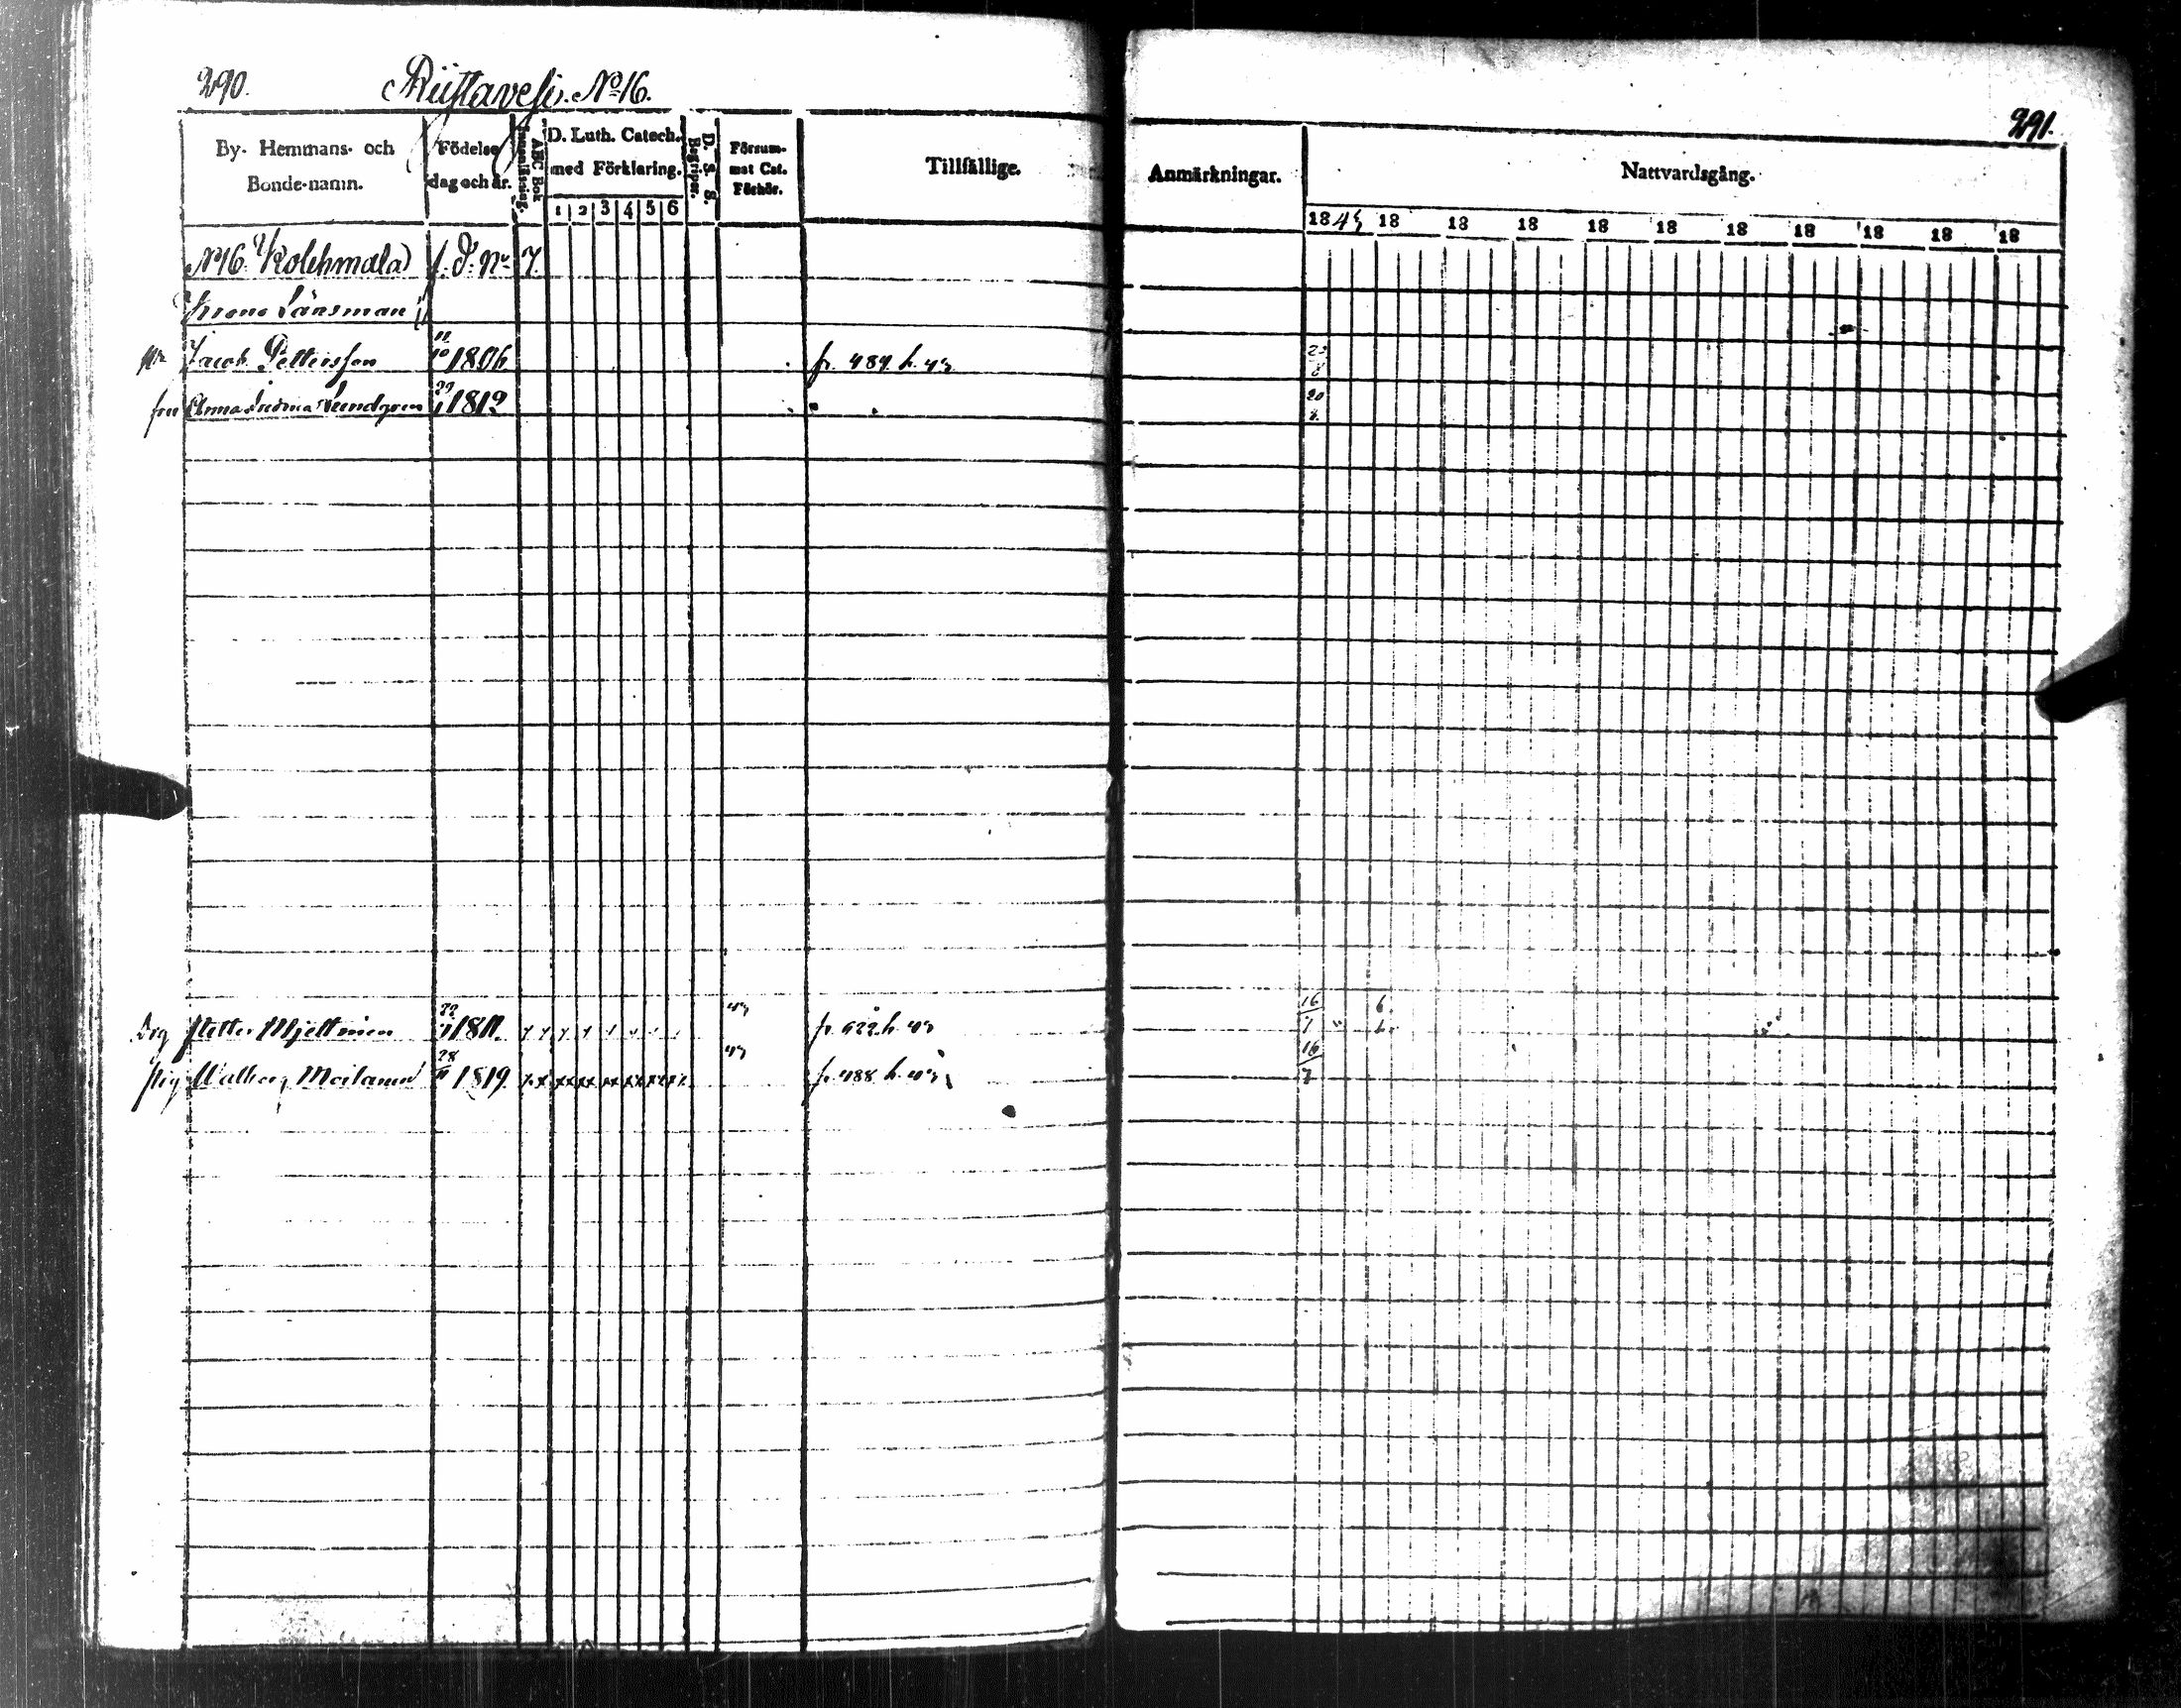 290.
Riistavesi. No 16.
By- Hemmans- och Bonde-namn.
Födelse dag och år.
ABC Bok
Innanläsning.
D. Luth. Catech. med Förklaring.
1 2 3 4 5 6
D. S. S.
Begriper.
Försum-
mat Cat.
Förhör.
Tillfällige.
No 16. Kolehmala f. d. No 7.
Krono Länsman
Jacob Pettersson 11/10 1806 fr. 489 h. 43
fru Anna Lundgren 1819
Drg Petter Mjettinen 1811. 43 fr. 522 h. 43
pig Walborg Moilanen 28 1819 43 fr. 488 h. 43
291.
Anmärkningar.
Nattvardsgång.
18 43 18 18 18 18 18 18 18 18 18 18
20
8
16 6
7
16
7